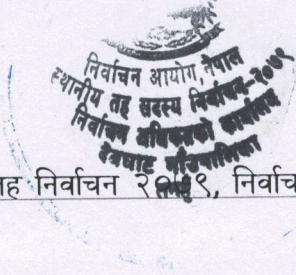 निर्वाचन आयोग, नेपाल
स्थानीय तह सदस्य निर्वाचन-२०७९
निर्वाचन अधिकृतको कार्यालय
देवघाट गाँउपालिका
तह निर्वाचन २०७९, निर्वाच